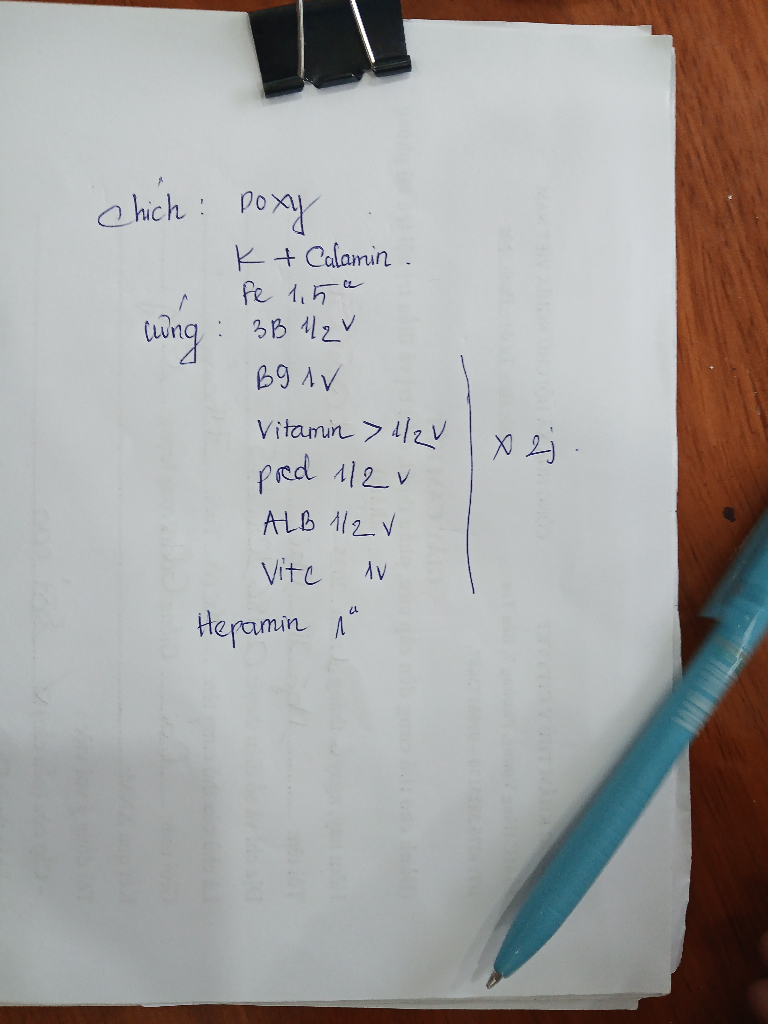 Chích : Doxy
K + Calamin .
Fe 1,5ᵃ
uống : 3B 1/2 V
B9 1V
Vitamin > 1/2 V
pred 1/2 V
ALB 1/2 V
Vitc 1V
x 2j .
Hepamin 1ᵃ